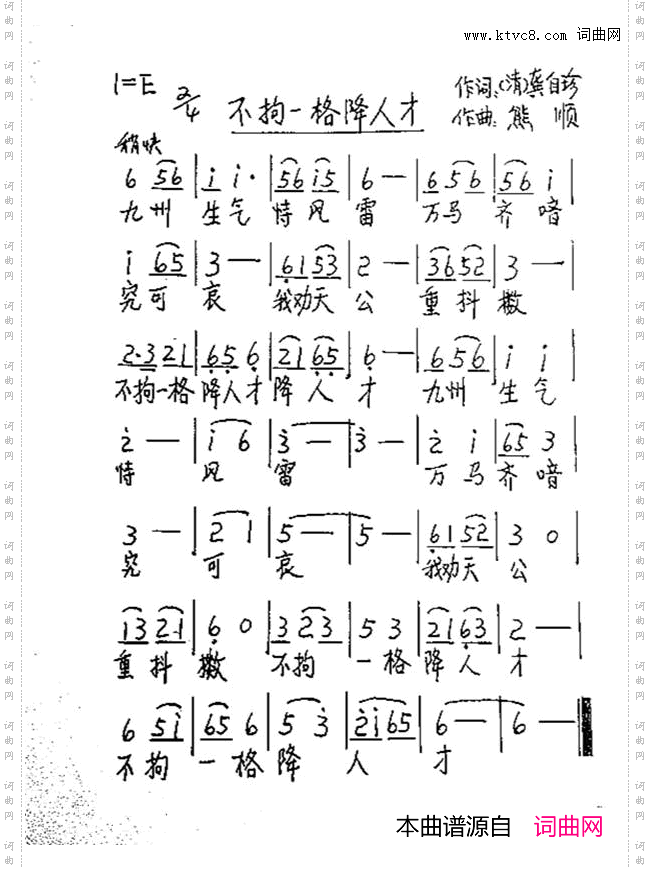 www.ktvc8.com 词曲网
1=E 2/4 不拘一格降人才
作词:(清)龚自珍
作曲:熊 顺
稍快
6 56 | i i· | 56 i5 | 6 — | 6 5 6 | 56 i |
九州 生气 恃风 雷 万马 齐喑
i 65 | 3 — | 61 53 | 2 — | 36 52 | 3 — |
究可 哀 我劝天 公 重抖 擞
2·3 21 | 65 6 | 21 65 | 6 — | 6 56 | i i |
不拘一格 降人才 降人 才 九州 生气
2 — | i 6 | 3 — | 3 — | 2 i | 65 3 |
恃 风 雷 万马 齐喑
3 — | 2 1 | 5 — | 5 — | 61 52 | 3 0 |
究 可 哀 我劝天 公
13 21 | 6 0 | 3 23 | 5 3 | 21 63 | 2 — |
重抖 擞 不拘 一格 降人 才
6 5i | 65 6 | 5 3 | 2i 65 | 6 — | 6 — |
不拘 一格 降 人 才
本曲谱源自 词曲网